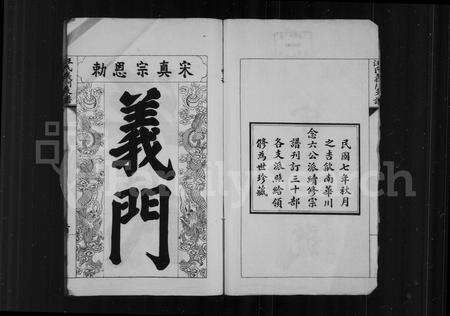 民國七年秋月
之吉歙南華川
念六公派續修宗
譜刊訂三十部
各支派照給領
修為世珍藏
宋真宗恩勅
義門